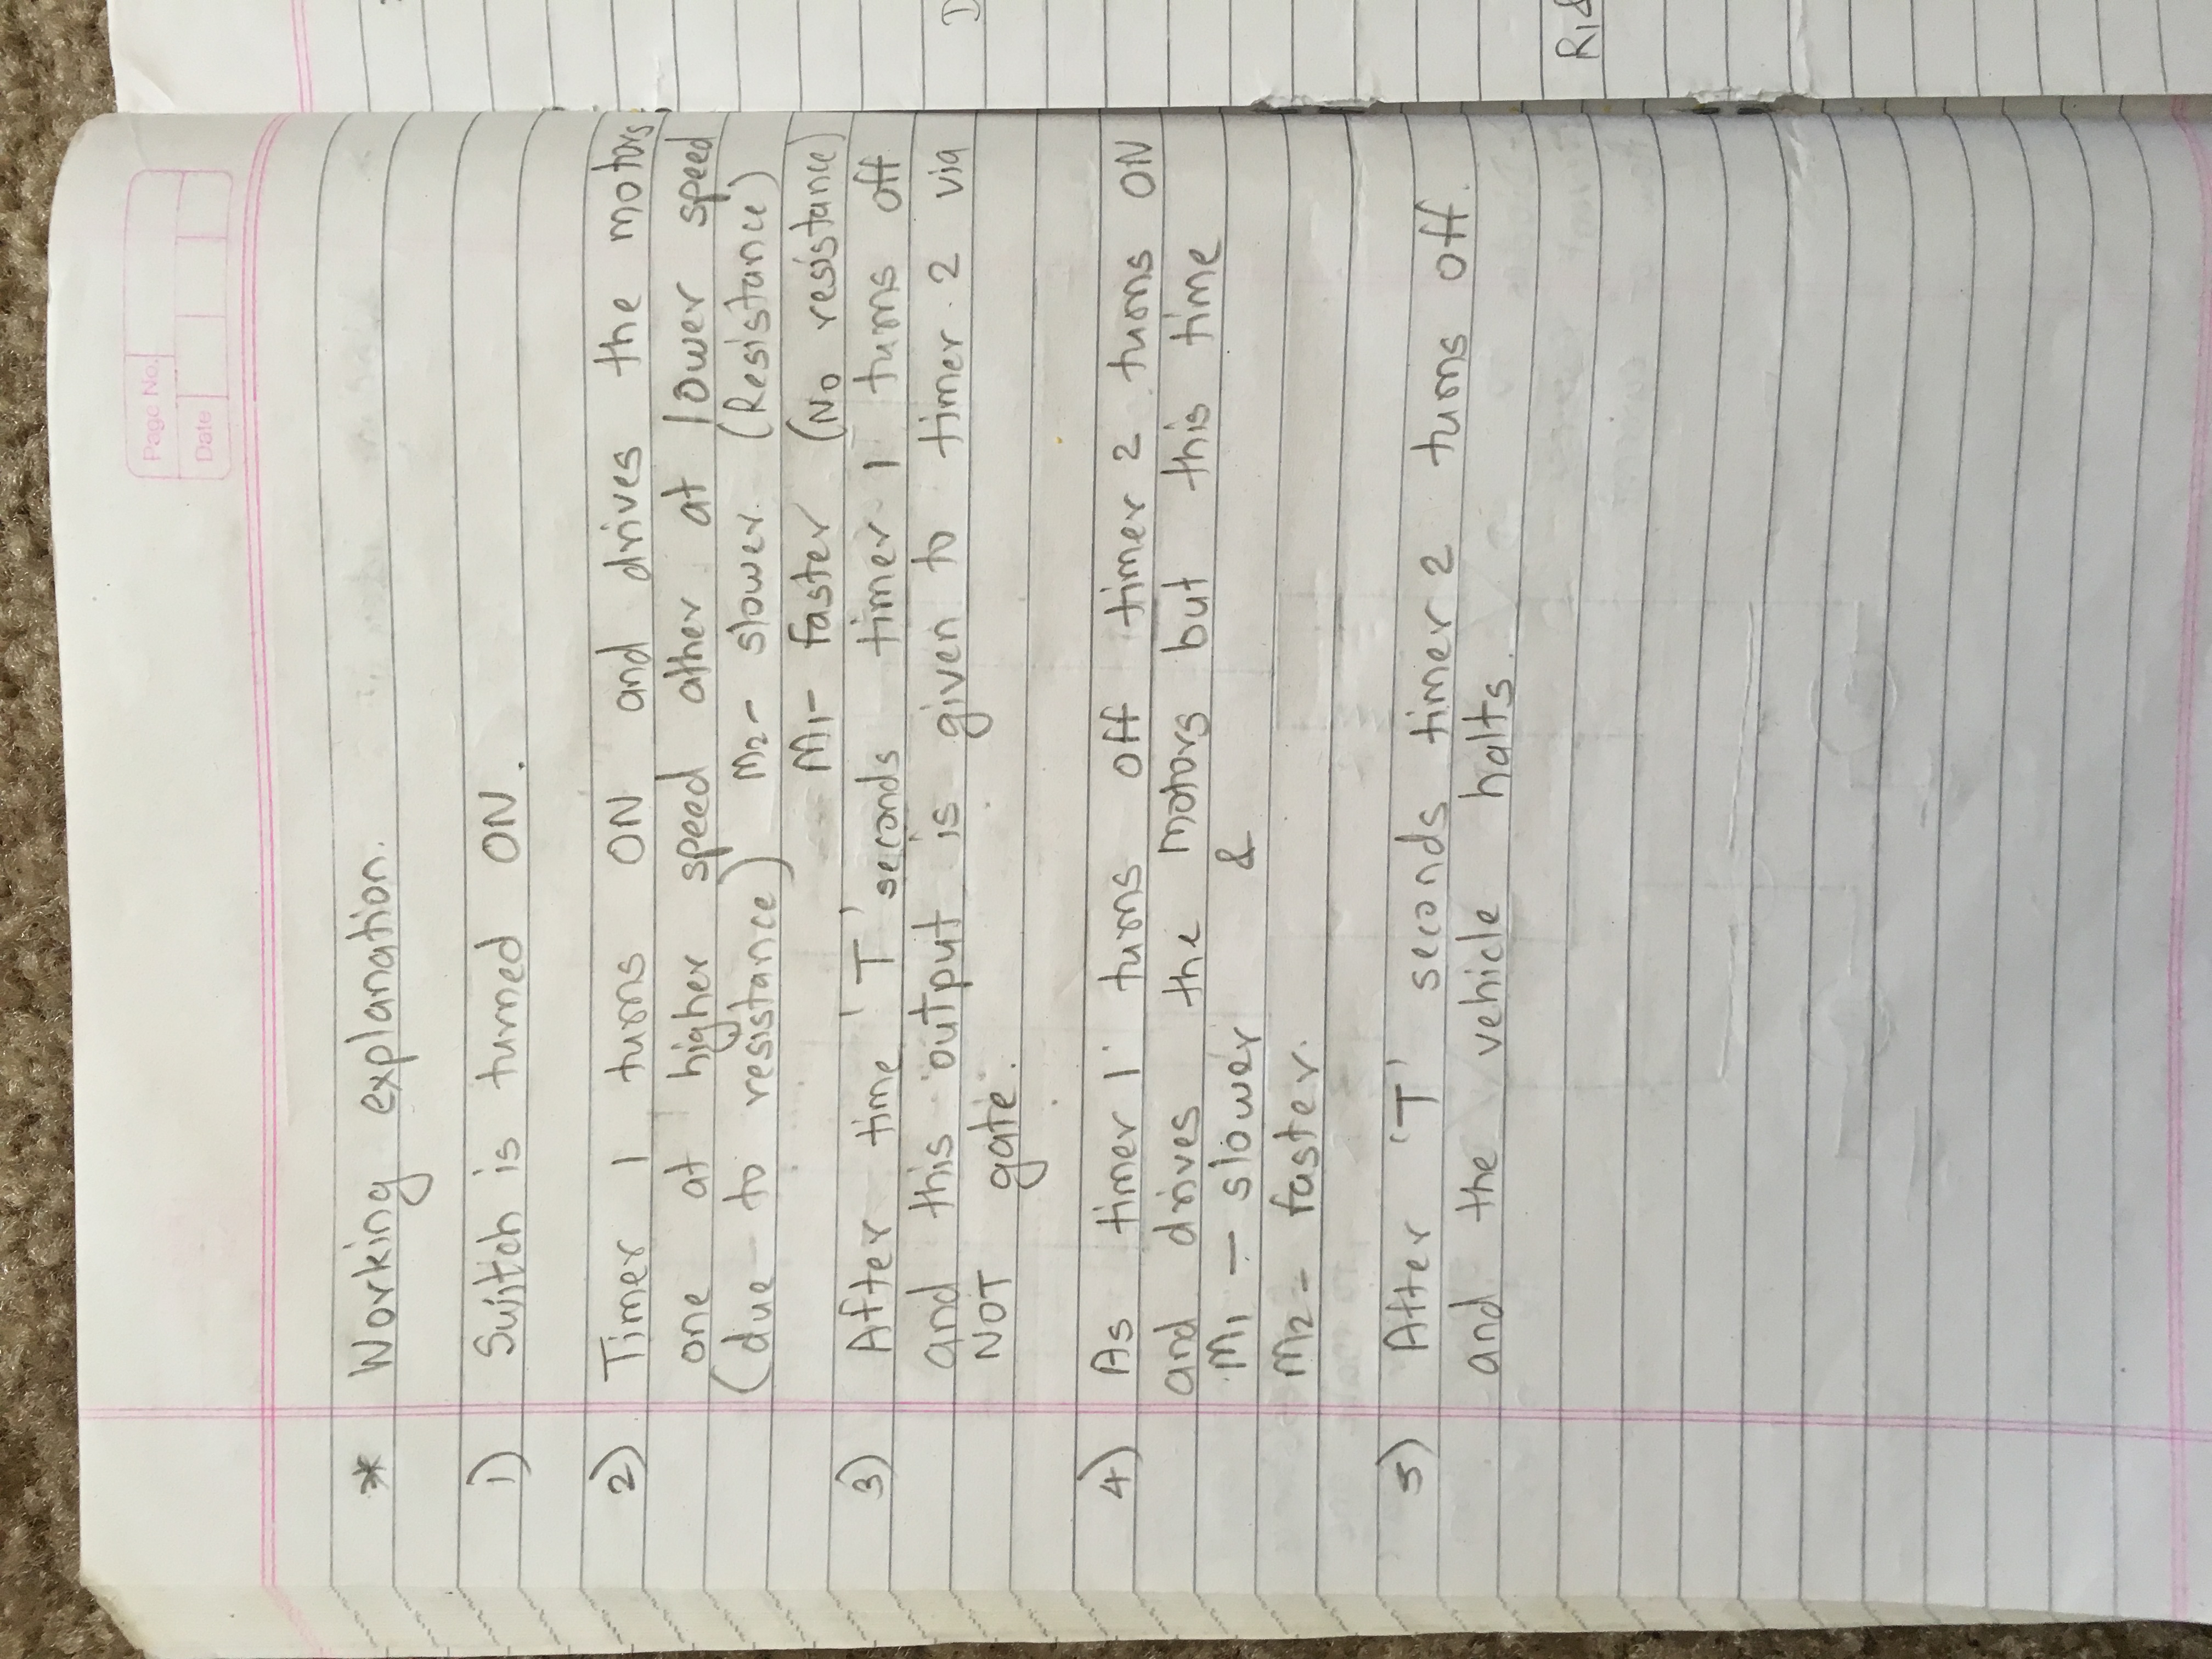 Page No.
Date
* Working explanation.
1) Switch is turned ON.
2) Timer 1 turns ON and drives the motors
one at higher speed other at lower speed
(due to resistance) M2- slower. (Resistance)
M1- faster (No resistance)
3) After time 'T' seconds timer 1 turns off
and this output is given to timer 2 via
NOT gate.
4) As timer 1 turns off timer 2 turns ON
and drives the motors but this time
M1 - slower &
M2 - faster.
5) After 'T' seconds timer 2 turns off.
and the vehicle halts.